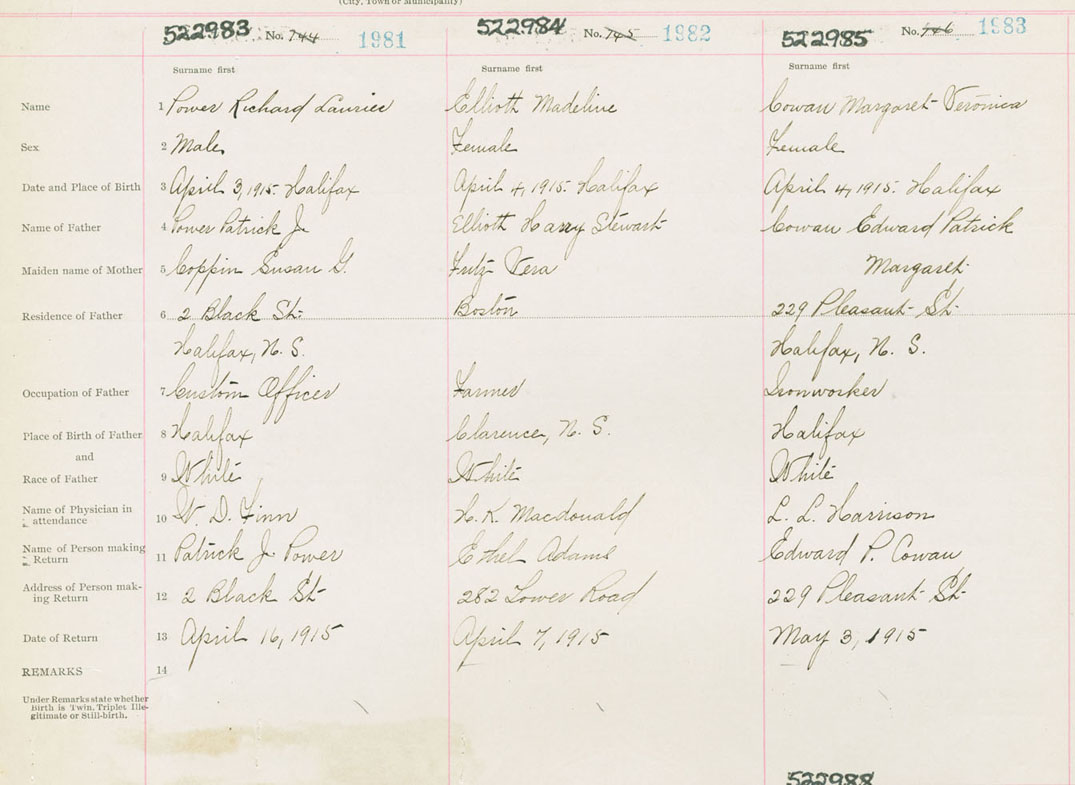 (City, Town or Municipality)
522983 No. 744 1981 522984 No. 745 1982 522985 No. 746 1983
Surname first Surname first Surname first
Name 1 Power Richard Laurier Elliott Madeline Cowan Margaret Veronica
Sex 2 Male Female Female
Date and Place of Birth 3 April 3, 1915 Halifax April 4, 1915. Halifax April 4, 1915. Halifax
Name of Father 4 Power Patrick J. Elliott Harry Stewart Cowan Edward Patrick
Maiden name of Mother 5 Coppin Susan G. Fritz Vera Margaret
Residence of Father 6 2 Black St. Boston 229 Pleasant St.
Halifax, N. S. Halifax, N. S.
Occupation of Father 7 Custom Officer Farmer Ironworker
Place of Birth of Father 8 Halifax Clarence, N. S. Halifax
and
Race of Father 9 White White White
Name of Physician in
attendance 10 W. D. Finn H. K. Macdonald L. L. Harrison
Name of Person making
Return 11 Patrick J. Power Ethel Adams Edward P. Cowan
Address of Person mak-
ing Return 12 2 Black St 282 Tower Road 229 Pleasant St
Date of Return 13 April 16, 1915 April 7, 1915 May 3, 1915
REMARKS 14
Under Remarks state whether
Birth is Twin, Triplet Ille-
gitimate or Still-birth.
522988